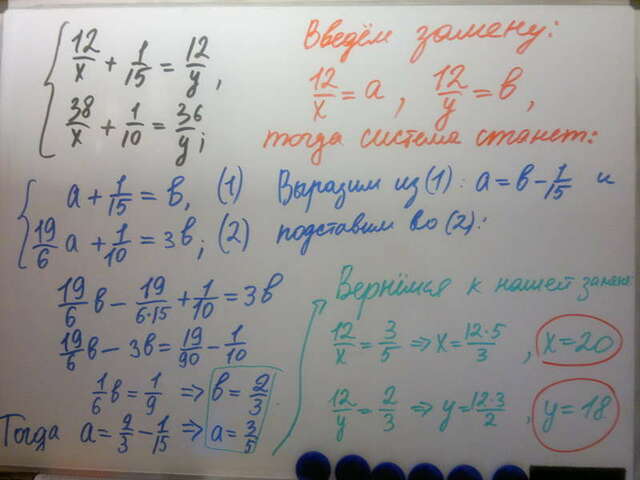 12/x + 1/15 = 12/y,
38/x + 1/10 = 36/y;
Введём замену:
12/x = a, 12/y = в,
тогда система станет:
a + 1/15 = в, (1)
19/6 a + 1/10 = 3в; (2)
Выразим из (1): a = в - 1/15 и
подставим во (2):
19/6 в - 19/6·15 + 1/10 = 3в
19/6 в - 3в = 19/90 - 1/10
1/6 в = 1/9 ⇒ в = 2/3.
Тогда a = 2/3 - 1/15 ⇒ a = 3/5
Вернёмся к нашей замене:
12/x = 3/5 ⇒ x = 12·5/3, x = 20
12/y = 2/3 ⇒ y = 12·3/2, y = 18